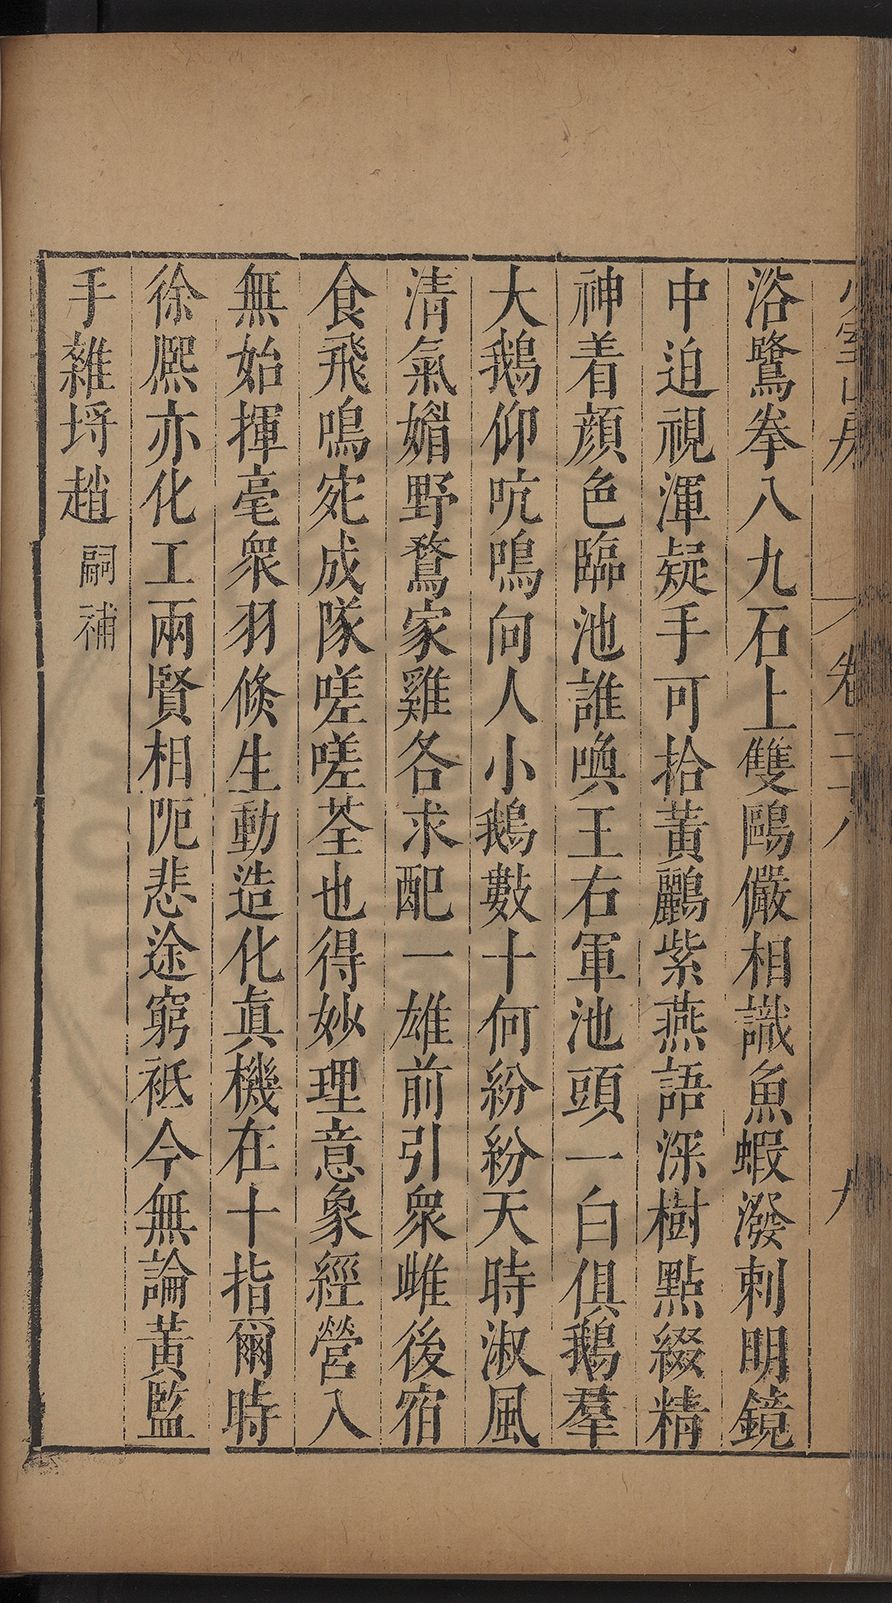 浴鷺拳八九石上雙鷗儼相識魚蝦潑刺明鏡
中迫視渾疑手可拾黃鸝紫燕語深樹點綴精
神着顏色臨池誰喚王右軍池頭一白俱鵝羣
大鵝仰吭鳴向人小鵝數十何紛紛天時淑風
清氣媚野鶩家雞各求配一雄前引衆雌後宿
食飛鳴宛成隊嗟嗟荃也得妙理意象經營入
無始揮毫衆羽倐生動造化真機在十指爾時
徐熈亦化工兩賢相阨悲途窮袛今無論黃監
手雜埓趙嗣補